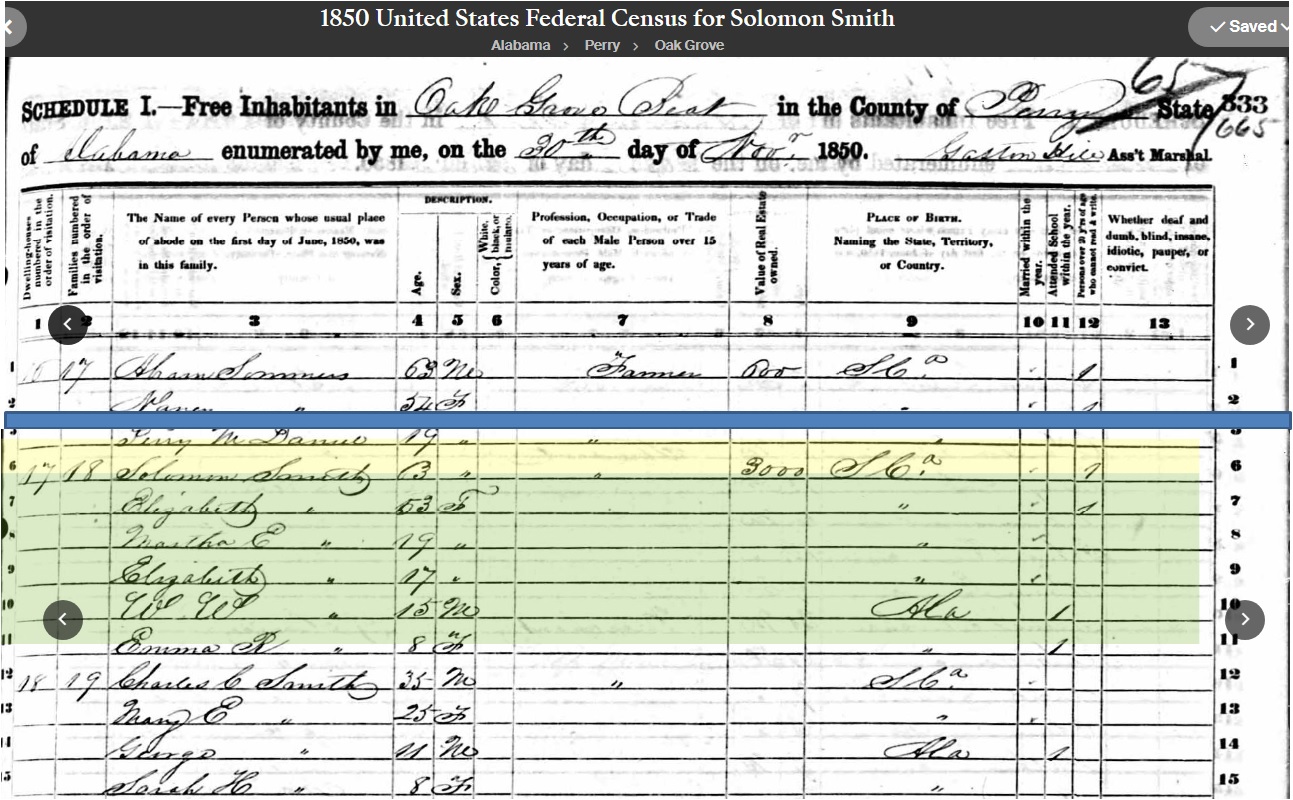 1850 United States Federal Census for Solomon Smith
✓ Saved
Alabama > Perry > Oak Grove
65
SCHEDULE I.—Free Inhabitants in Oake Grove Beat in the County of Perry State 333
665
of Alabama enumerated by me, on the 20th day of Novr. 1850. Gaston Hill Ass't Marshal.
Dwelling-houses numbered in the order of visitation.
Families numbered in the order of visitation.
The Name of every Person whose usual place of abode on the first day of June, 1850, was in this family.
DESCRIPTION.
Age.
Sex.
Color, White, black, or mulatto.
Profession, Occupation, or Trade of each Male Person over 15 years of age.
Value of Real Estate owned.
PLACE OF BIRTH. Naming the State, Territory, or Country.
Married within the year.
Attended School within the year.
Persons over 20 y'rs of age who cannot read & write.
Whether deaf and dumb, blind, insane, idiotic, pauper, or convict.
1 2 3 4 5 6 7 8 9 10 11 12 13
1 16 17 Abram Sommers 63 M Farmer 600 S Ca 1 1
2 Nancy " 54 F " 1 2
5 Perry McDaniel 19 " " " 5
6 17 18 Solomon Smith 63 " " 3000 S Ca 1 6
7 Elizabeth " 53 F " 1 7
8 Martha E " 19 " " 8
9 Elizabeth " 17 " " 9
10 W. W. " 15 M " Ala 1 10
11 Emma R " 8 F " 1 11
12 18 19 Charles C Smith 35 M " S Ca 12
13 Mary E " 25 F " 13
14 George " 11 M Ala 1 14
15 Sarah H " 8 F " 15